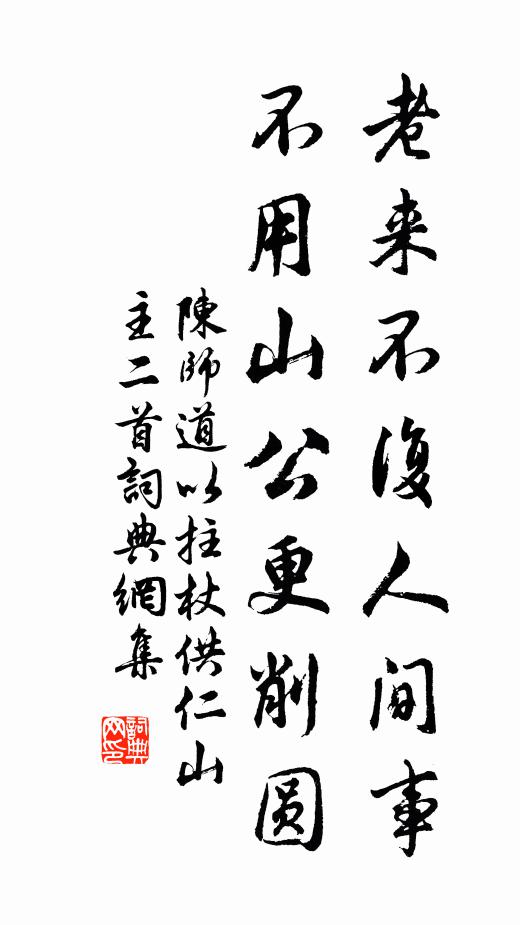 老来不復人间事
不用山公更削圆
陳師道以拄杖供仁山
主二首詞典網集
詞典网印